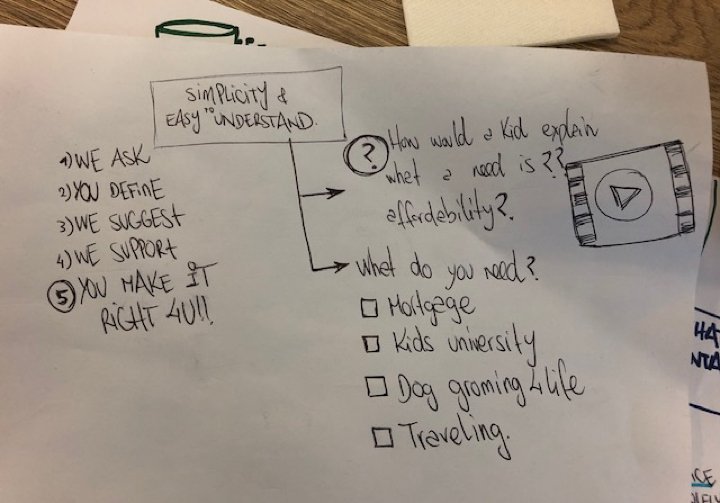 SIMPLICITY &
EASY TO UNDERSTAND.
1) WE ASK
2) YOU DEFINE
3) WE SUGGEST
4) WE SUPPORT
5 YOU MAKE IT
RIGHT 4U!!
? How would a kid explain
what a need is ??
affordability?
What do you need?
Mortgage
Kids university
Dog groming 4 life
Traveling.
HA
NTA